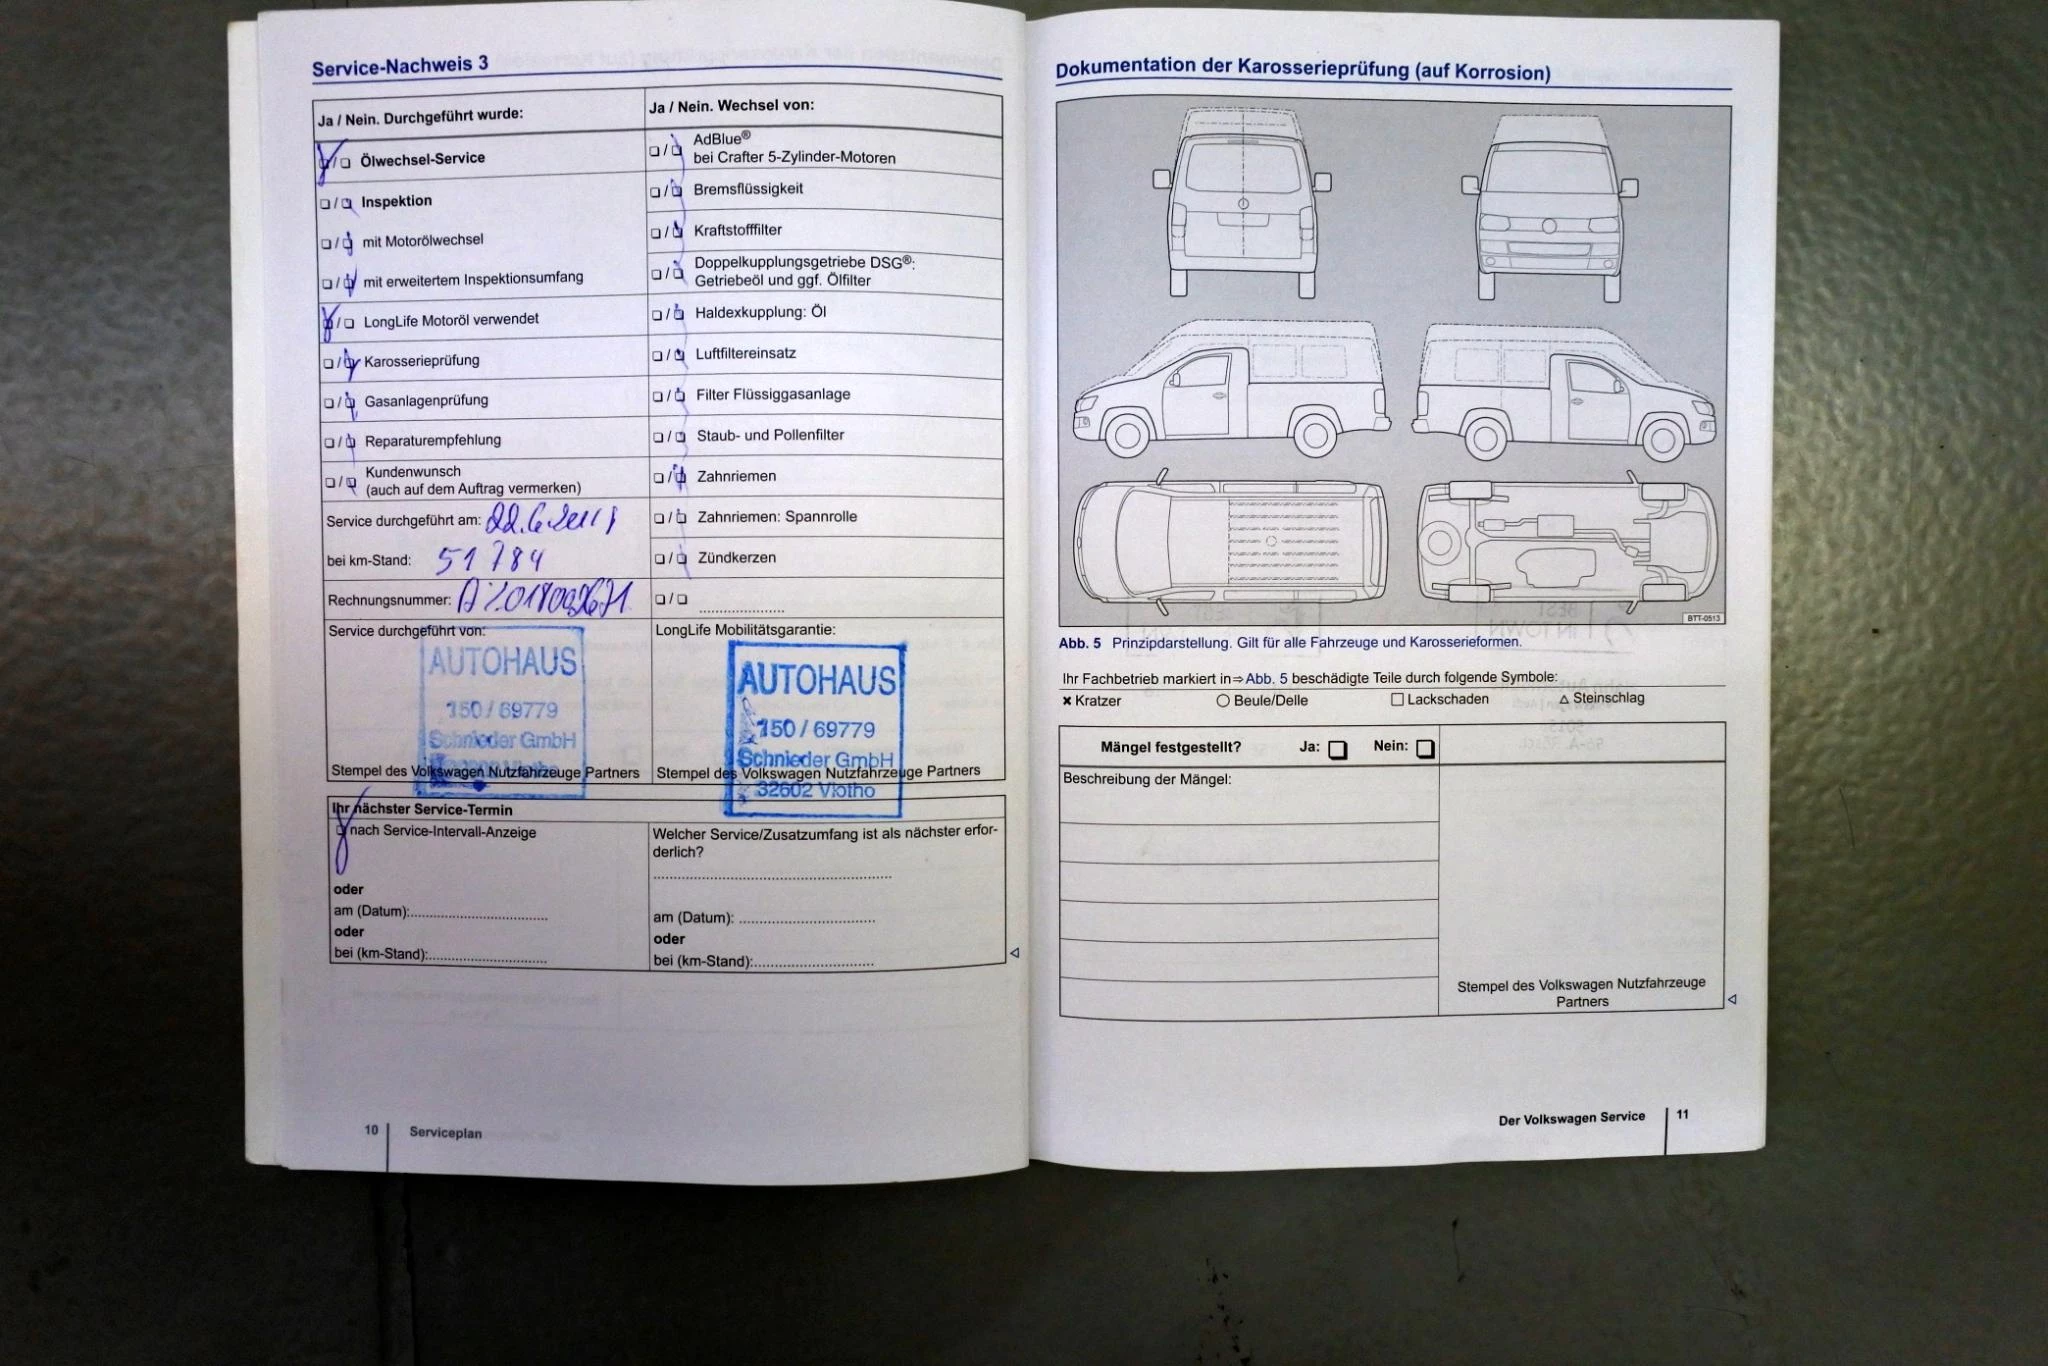 Service-Nachweis 3
Ja / Nein. Durchgeführt wurde:
Ölwechsel-Service
Inspektion
mit Motorölwechsel
mit erweitertem Inspektionsumfang
LongLife Motoröl verwendet
Karosserieprüfung
Gasanlagenprüfung
Reparaturempfehlung
Kundenwunsch
(auch auf dem Auftrag vermerken)
Service durchgeführt am:
bei km-Stand: 51 784
Rechnungsnummer:
Ja / Nein. Wechsel von:
AdBlue®
bei Crafter 5-Zylinder-Motoren
Bremsflüssigkeit
Kraftstofffilter
Doppelkupplungsgetriebe DSG®:
Getriebeöl und ggf. Ölfilter
Haldexkupplung: Öl
Luftfiltereinsatz
Filter Flüssiggasanlage
Staub- und Pollenfilter
Zahnriemen
Zahnriemen: Spannrolle
Zündkerzen
Service durchgeführt von:
AUTOHAUS
150 / 69779
Schnieder GmbH
Vlotho
Stempel des Volkswagen Nutzfahrzeuge Partners
LongLife Mobilitätsgarantie:
AUTOHAUS
150 / 69779
Schnieder GmbH
32602 Vlotho
Stempel des Volkswagen Nutzfahrzeuge Partners
Ihr nächster Service-Termin
nach Service-Intervall-Anzeige
oder
am (Datum):
oder
bei (km-Stand):
Welcher Service/Zusatzumfang ist als nächster erfor-
derlich?
am (Datum):
oder
bei (km-Stand):
10 Serviceplan
Dokumentation der Karosserieprüfung (auf Korrosion)
BTT-0513
Abb. 5 Prinzipdarstellung. Gilt für alle Fahrzeuge und Karosserieformen.
Ihr Fachbetrieb markiert in⇒Abb. 5 beschädigte Teile durch folgende Symbole:
Kratzer Beule/Delle Lackschaden Steinschlag
Mängel festgestellt? Ja: Nein:
Beschreibung der Mängel:
Stempel des Volkswagen Nutzfahrzeuge
Partners
Der Volkswagen Service 11